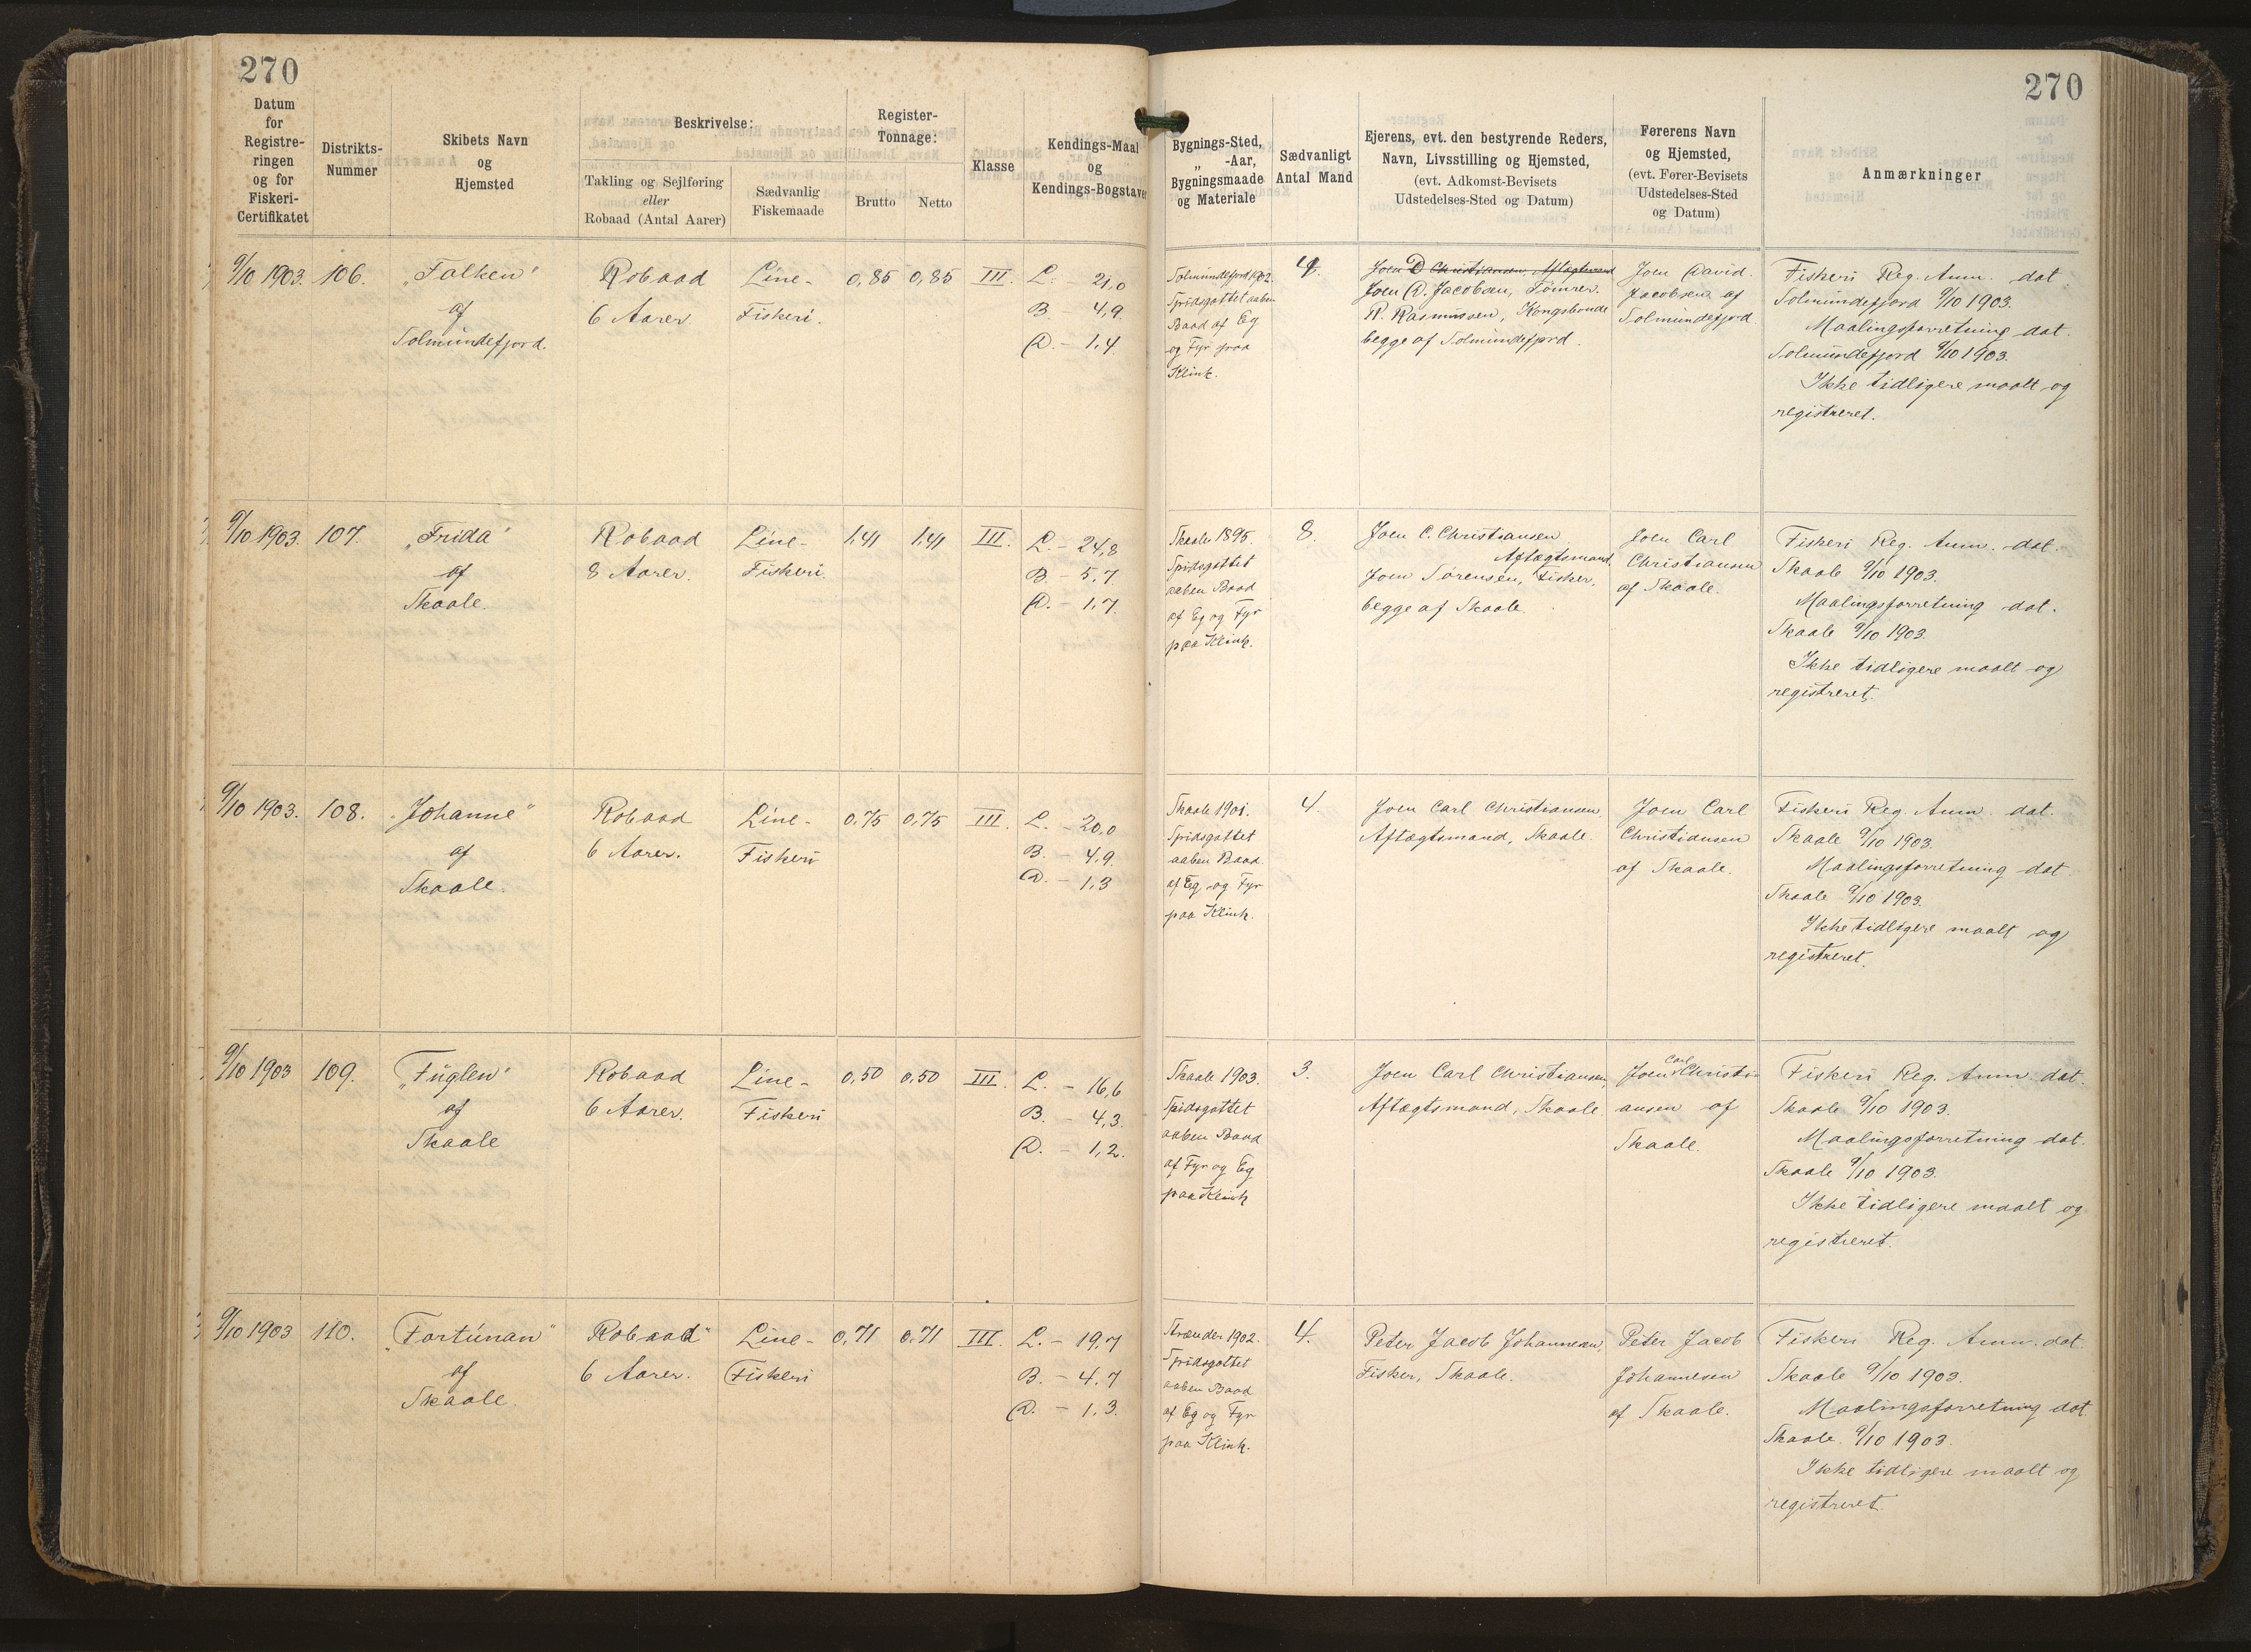 270
270
Datum
for
Registre-
ringen
og for
Fiskeri-
Certifikatet
Distrikts-
Nummer
Skibets Navn
og
Hjemsted
Beskrivelse:
Takling og Sejlføring
eller
Robaad (Antal Aarer)
Sædvanlig
Fiskemaade
Register-
Tonnage:
Brutto
Netto
Klasse
Kendings-Maal
og
Kendings-Bogstaver
Bygnings-Sted,
„ -Aar,
Bygningsmaade
og Materiale
Sædvanligt
Antal Mand
Ejerens, evt. den bestyrende Reders,
Navn, Livsstilling og Hjemsted,
(evt. Adkomst-Bevisets
Udstedelses-Sted og Datum)
Førerens Navn
og Hjemsted,
(evt. Fører-Bevisets
Udstedelses-Sted
og Datum)
Anmærkninger
9/10 1903.
106.
„Falken"
af
Solmundefjord.
Robaad
6 Aarer
Line-
Fiskeri.
0,85
0,85
III.
L. - 21,0
B. - 4,9.
D. - 1,4.
Solmundefjord 1902.
Spidsgattet aaben
Baad af Eg
og Fyr paa
Klink.
4.
Joen D Christiansen, Aftægtsmand
Joen D. Jacobsen, Tømrer.
R. Rasmussen, Kongsbonde
begge af Solmundefjord.
Joen David.
Jacobsen af
Solmundefjord.
Fiskeri Reg. Anm. dat.
Solmundefjord 9/10 1903.
Maalingsforretning dat.
Solmundefjord 9/10 1903.
Ikke tidligere maalt og
registreret.
9/10 1903.
107.
„Frida"
af
Skaale.
Robaad
8 Aarer.
Line-
Fiskeri
1,41
1,41
III.
L. - 24,8
B. - 5,7
D. - 1,7.
Skaale 1895.
Spidsgattet
aaben Baad
af Eg og Fyr
paa Klink.
8.
Joen C. Christiansen
Aftægtsmand,
Joen Sørensen, Fisker,
begge af Skaale.
Joen Carl
Christiansen
af Skaale.
Fiskeri Reg. Anm. dat.
Skaale 9/10 1903.
Maalingsforretning dat.
Skaale 9/10 1903.
Ikke tidligere maalt og
registreret.
9/10 1903.
108.
„Johanne"
af
Skaale.
Robaad
6 Aarer.
Line-
Fiskeri
0,75
0,75
III.
L. - 20,0
B. - 4,9.
D. - 1,3
Skaale 1901.
Spidsgattet
aaben Baad.
af Eg, og Fyr
paa Klink.
4.
Joen Carl Christiansen,
Aftægtsmand, Skaale.
Joen Carl
Christiansen
af Skaale.
Fiskeri Reg. Anm. dat.
Skaale 9/10 1903.
Maalingsforretning dat.
Skaale 9/10 1903.
Ikke tidligere maalt og
registreret.
9/10 1903
109.
„Fuglen"
af
Skaale
Robaad
6 Aarer.
Line-
Fiskeri
0,50
0,50
III.
L. - 16,6
B. - 4,3.
D. - 1,2.
Skaale 1903.
Spidsgattet
aaben Baad
af Fyr og Eg
paa Klink
3.
Joen Carl Christiansen,
Aftægtsmand, Skaale.
Joen Carl Christi-
ansen af
Skaale.
Fiskeri Reg. Anm. dat.
Skaale 9/10 1903.
Maalingsforretning dat.
Skaale 9/10 1903.
Ikke tidligere maalt og
registreret.
9/10 1903
110.
„Fortunan"
af
Skaale.
Robaad
6 Aarer.
Line-
Fiskeri
0,71
0,71
III.
L. - 19,7
B. - 4,7
D. - 1,3.
Strænder 1902.
Spidsgattet
aaben Baad
af Eg og Fyr
paa Klink.
4.
Peter Jacob Johannesen,
Fisker, Skaale.
Peter Jacob
Johannesen
af Skaale.
Fiskeri Reg. Anm. dat.
Skaale 9/10 1903.
Maalingsforretning dat.
Skaale 9/10 1903.
Ikke tidligere maalt og
registreret.